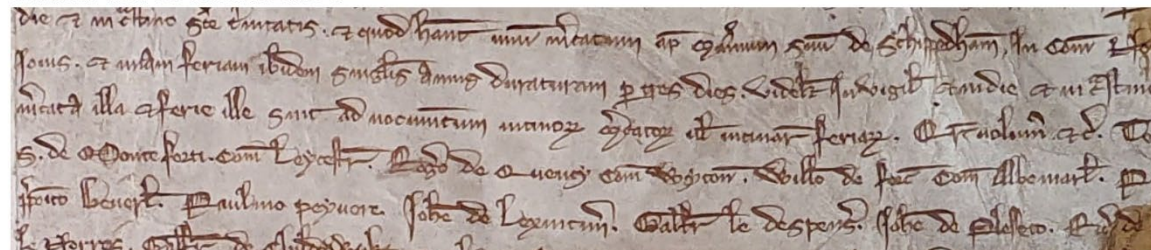 die & in c^astino s^ce t^initatis. & quod hant unu m^catum ap^d man^ium suu de Schippedham, In com
Iouis. & unam feriam ibidem singlis annis duraturam p tres dies. videlt In vigil. & in die & in c^astino
m^cata illa & ferie ille sint ad nocumentum vicinoꝝ m^catoꝝ & vicinar feriaꝝ. Q^re volum^s. &c. T
S. de Monte forti. Com Leycestr. Rog^o de Quency Com Wynton. Willo de fort Com Albemarl.
p^posito Beuerl. Paulino peyuore. Iohe de Lexinton. Galfr le despens^. Iohe de Plesseto. de
le